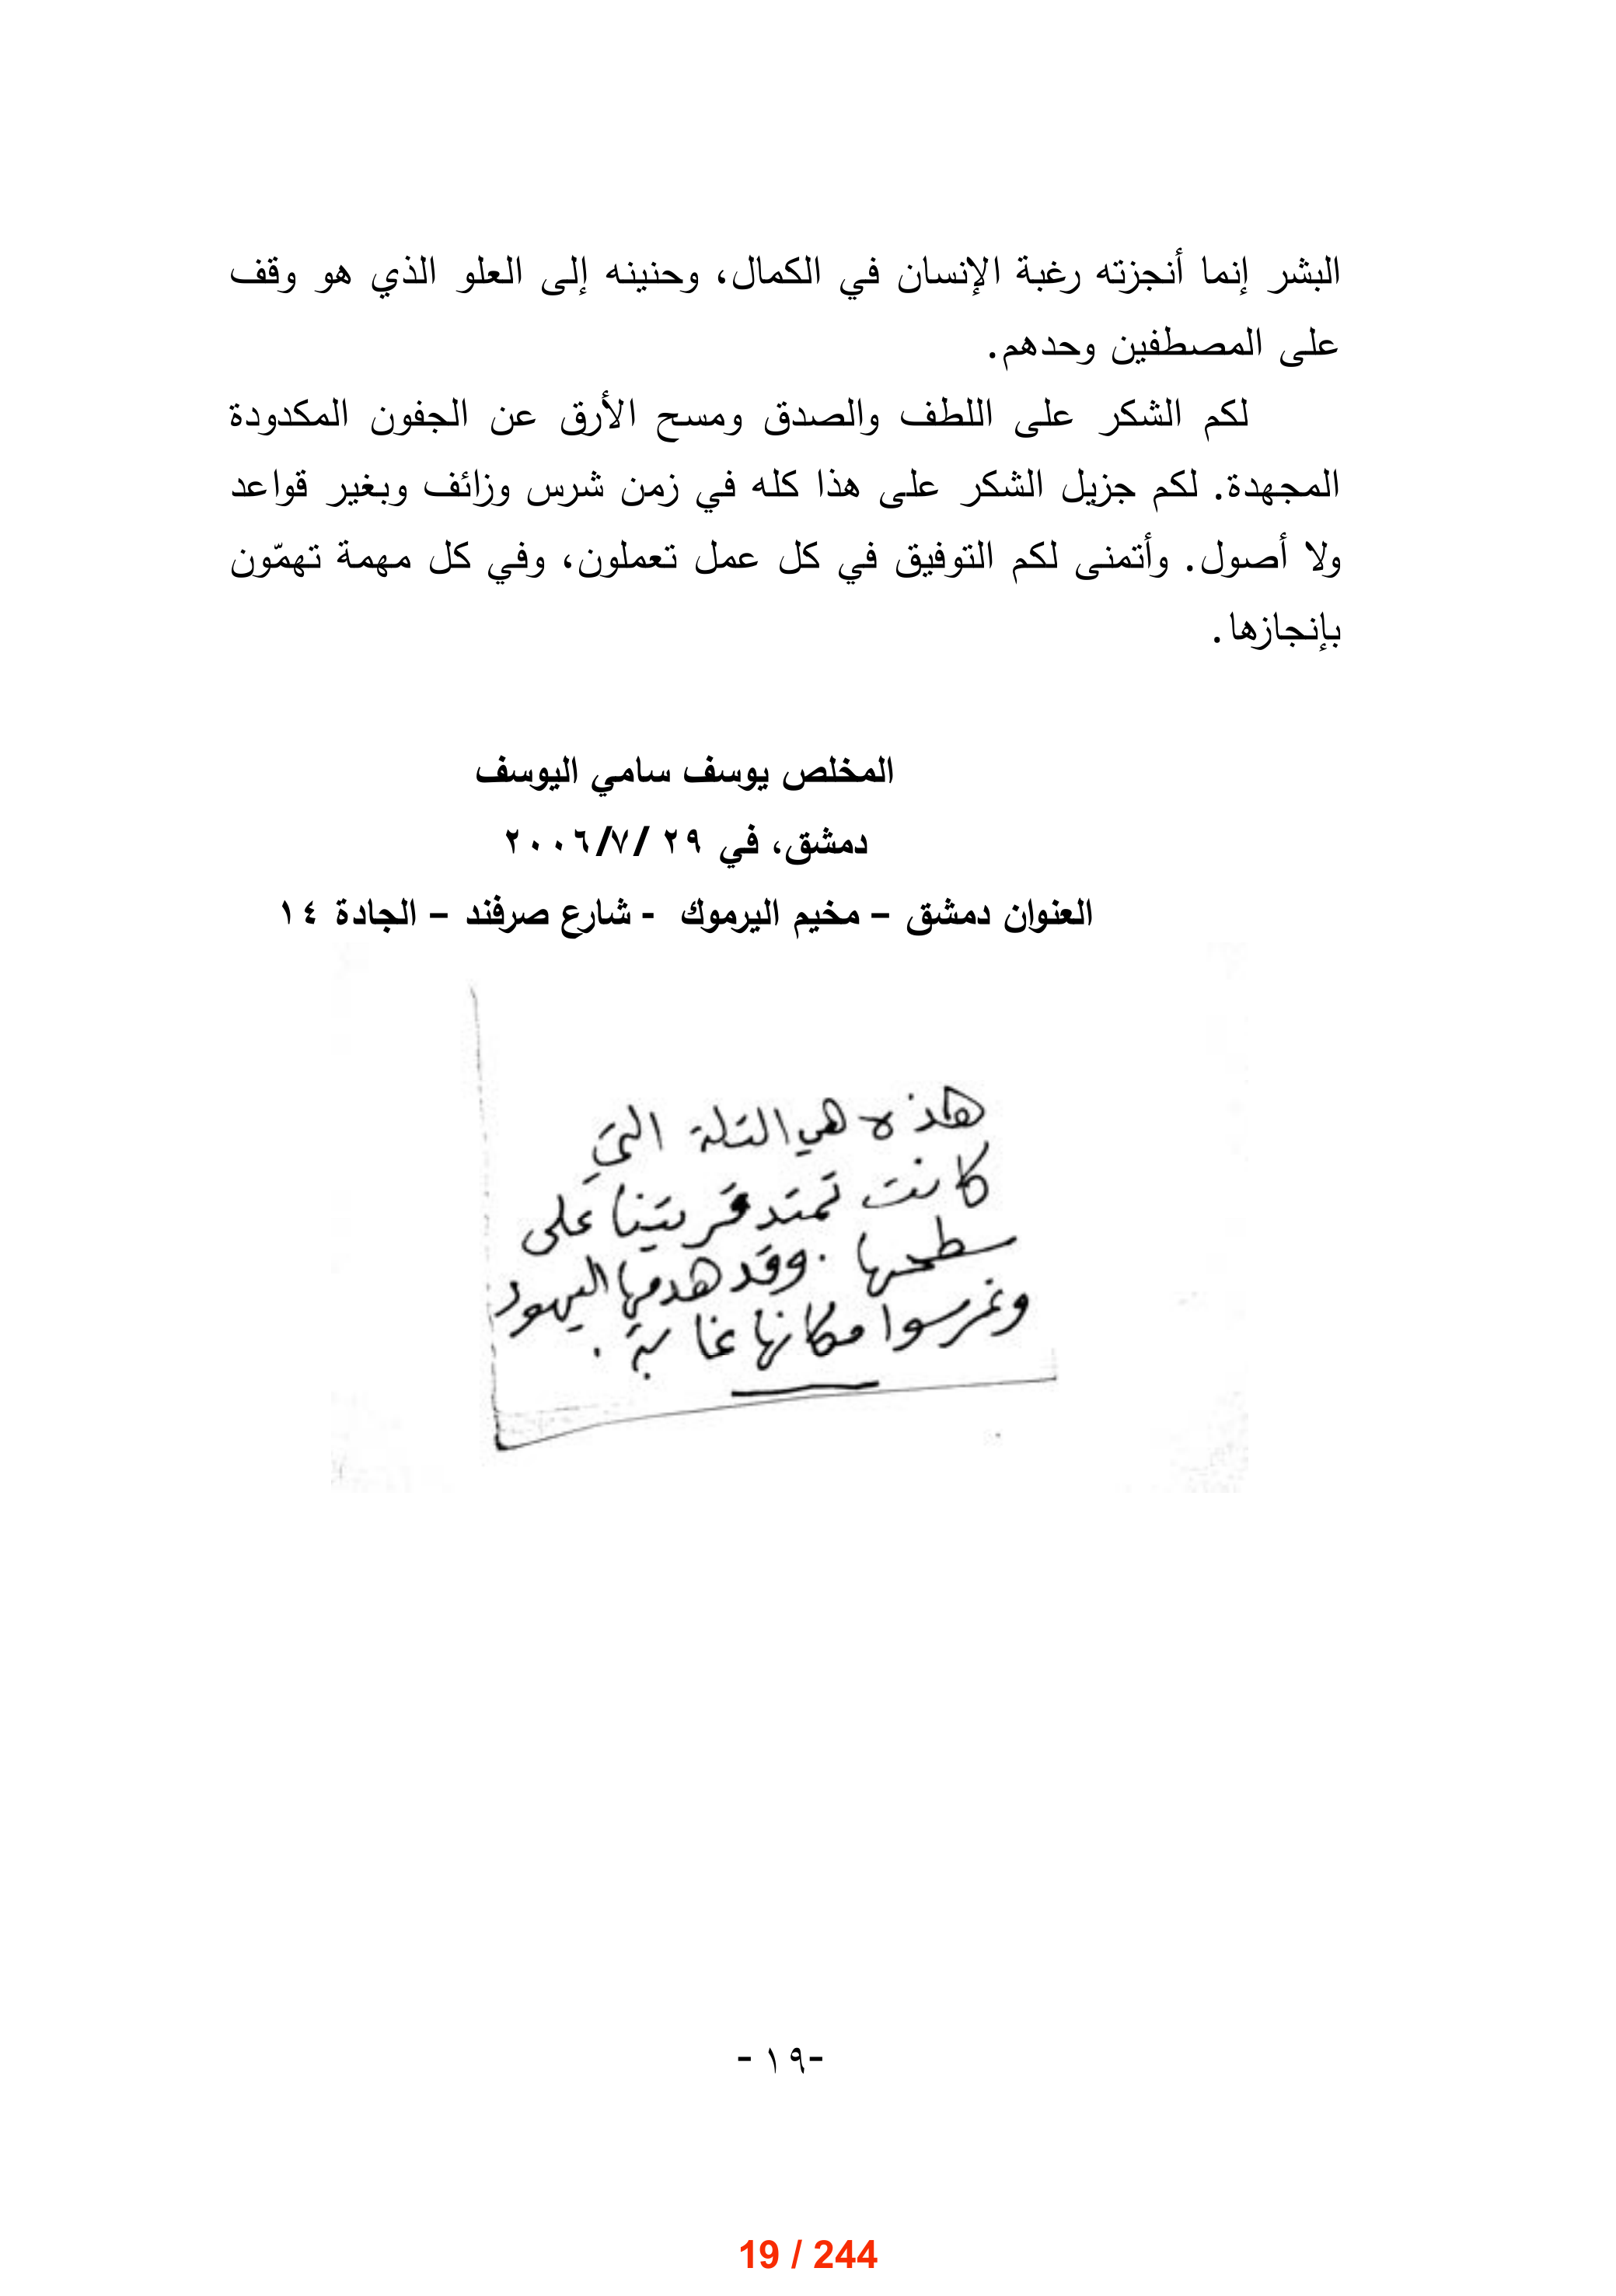 البشر إنما أنجزته رغبة الإنسان في الكمال، وحنينه إلى العلو الذي هو وقف
على المصطفين وحدهم.
لكم الشكر على اللطف والصدق ومسح الأرق عن الجفون المكدودة
المجهدة. لكم جزيل الشكر على هذا كله في زمن شرس وزائف وبغير قواعد
ولا أصول. وأتمنى لكم التوفيق في كل عمل تعملون، وفي كل مهمة تهمّون
بإنجازها.
المخلص يوسف سامي اليوسف
دمشق، في ٢٩ /٧/ ٢٠٠٦
العنوان دمشق – مخيم اليرموك - شارع صرفند – الجادة ١٤
هذه هي التلة التي
كانت تمتد قريتنا على
سطحها. وقد هدمها اليهود
وغرسوا مكانها غابة.
-١٩ -
19 / 244